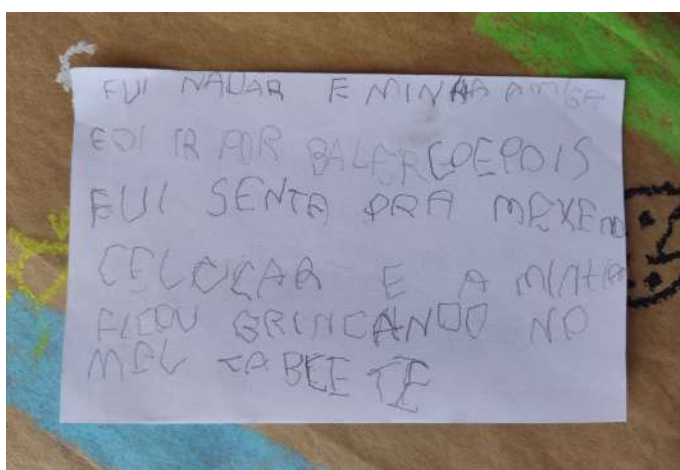 FUI NADAR E MINHA AMIGA
FOI IR POR BALER E DEPOIS
FUI SENTA PRA MEXE NO
CELULAR E A MINHA
FICOU BRINCANDO NO
MEU TABLETE